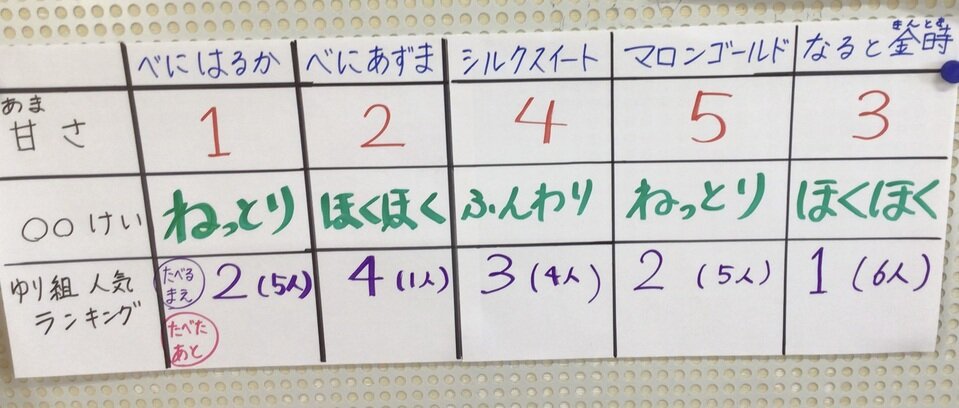 べにはるか べにあずま シルクスイート マロンゴールド なると金時
きんとき
あま
甘さ 1 2 4 5 3
○○けい ねっとり ほくほく ふんわり ねっとり ほくほく
ゆり組人気
ランキング
たべる
まえ
2(5人) 4(1人) 3(4人) 2(5人) 1(6人)
たべた
あと